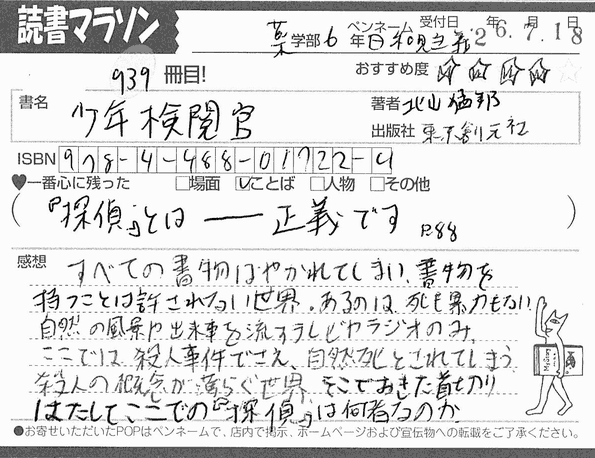 読書マラソン
薬学部6年 ペンネーム 日和見主義 受付日 26年7月18日
939冊目!
おすすめ度 ☆☆☆☆☆
書名 少年検閲官
著者 北山猛邦
出版社 東京創元社
ISBN 978-4-488-01722-4
♥一番心に残った □場面 ☑ことば □人物 □その他
(『探偵』とは ―― 正義です P.88)
感想 すべての書物はやかれてしまい、書物を
持つことは許されない世界。あるのは、死も暴力もない
自然の風景や出来事を流すテレビやラジオのみ。
ここでは、殺人事件でさえ、自然死とされてしまう
殺人の概念が薄らぐ世界、そこでおきた首切り
はたしてここでの『探偵』は何者なのか
●お寄せいただいたPOPはペンネームで、店内で掲示、ホームページおよび宣伝物への転載をご了承ください。